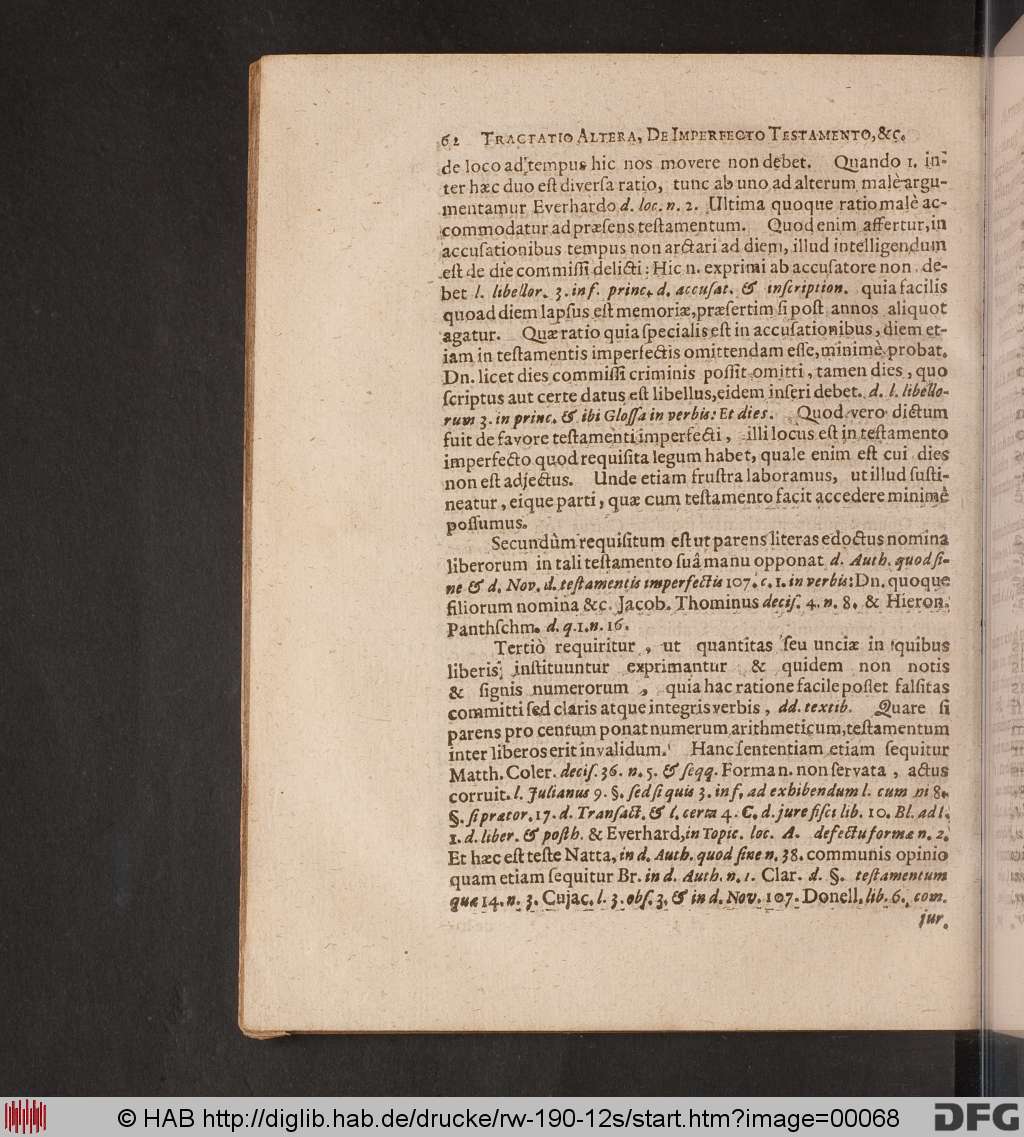 62 TRACTATIO ALTERA, DE IMPERFECTO TESTAMENTO, &c.
de loco ad tempus hic nos movere non debet. Quando 1. in-
ter hæc duo eſt diverſa ratio, tunc ab uno ad alterum malè argu-
mentamur Everhardo d. loc. n. 2. Ultima quoque ratio malè ac-
commodatur ad præſens teſtamentum. Quod enim affertur, in
accuſationibus tempus non arctari ad diem, illud intelligendum
eſt de die commiſſi delicti: Hic n. exprimi ab accuſatore non de-
bet l. libellor. 3. inf. princ. d. accuſat. & inſcription. quia facilis
quoad diem lapſus eſt memoriæ, præſertim ſi poſt annos aliquot
agatur. Quæ ratio quia ſpecialis eſt in accuſationibus, diem et-
iam in teſtamentis imperfectis omittendam eſſe, minimè probat.
Dn. licet dies commiſſi criminis poſſit omitti, tamen dies, quo
ſcriptus aut certe datus eſt libellus, eidem inſeri debet. d. l. libello-
rum 3. in princ. & ibi Gloſſa in verbis: Et dies. Quod vero dictum
fuit de favore teſtamenti imperfecti, illi locus eſt in teſtamento
imperfecto quod requiſita legum habet, quale enim eſt cui dies
non eſt adjectus. Unde etiam fruſtra laboramus, ut illud ſuſti-
neatur, eique parti, quæ cum teſtamento facit accedere minimè
poſſumus.
Secundùm requiſitum eſt ut parens literas edoctus nomina
liberorum in tali teſtamento ſuâ manu opponat d. Auth. quod ſi-
ne & d. Nov. d. teſtamentis imperfectis 107. c. 1. in verbis: Dn. quoque
filiorum nomina &c. Jacob. Thominus deciſ. 4. n. 8. & Hieron.
Panthſchm. d. q. 1. n. 16.
Tertiò requiritur, ut quantitas ſeu unciæ in quibus
liberis inſtituuntur exprimantur & quidem non notis
& ſignis numerorum, quia hac ratione facile poſſet falſitas
committi ſed claris atque integris verbis, dd. textib. Quare ſi
parens pro centum ponat numerum arithmeticum, teſtamentum
inter liberos erit invalidum. Hanc ſententiam etiam ſequitur
Matth. Coler. deciſ. 36. n. 5. & ſeqq. Forma n. non ſervata, actus
corruit. l. Julianus 9. §. ſed ſi quis 3. inf. ad exhibendum l. cum ni 8.
§. ſi prætor. 17. d. Tranſact. & l. certa 4. C. d. jure fiſci lib. 10. Bl. ad l.
1. d. liber. & poſth. & Everhard, in Topic. loc. A. defectu formæ n. 2.
Et hæc eſt teſte Natta, in d. Auth. quod ſine n. 38. communis opinio
quam etiam ſequitur Br. in d. Auth. n. 1. Clar. d. §. teſtamentum
quæ 14. n. 3. Cujac. l. 3. obſ. 3. & in d. Nov. 107. Donell. lib. 6. com.
jur.
© HAB http://diglib.hab.de/drucke/rw-190-12s/start.htm?image=00068
DFG